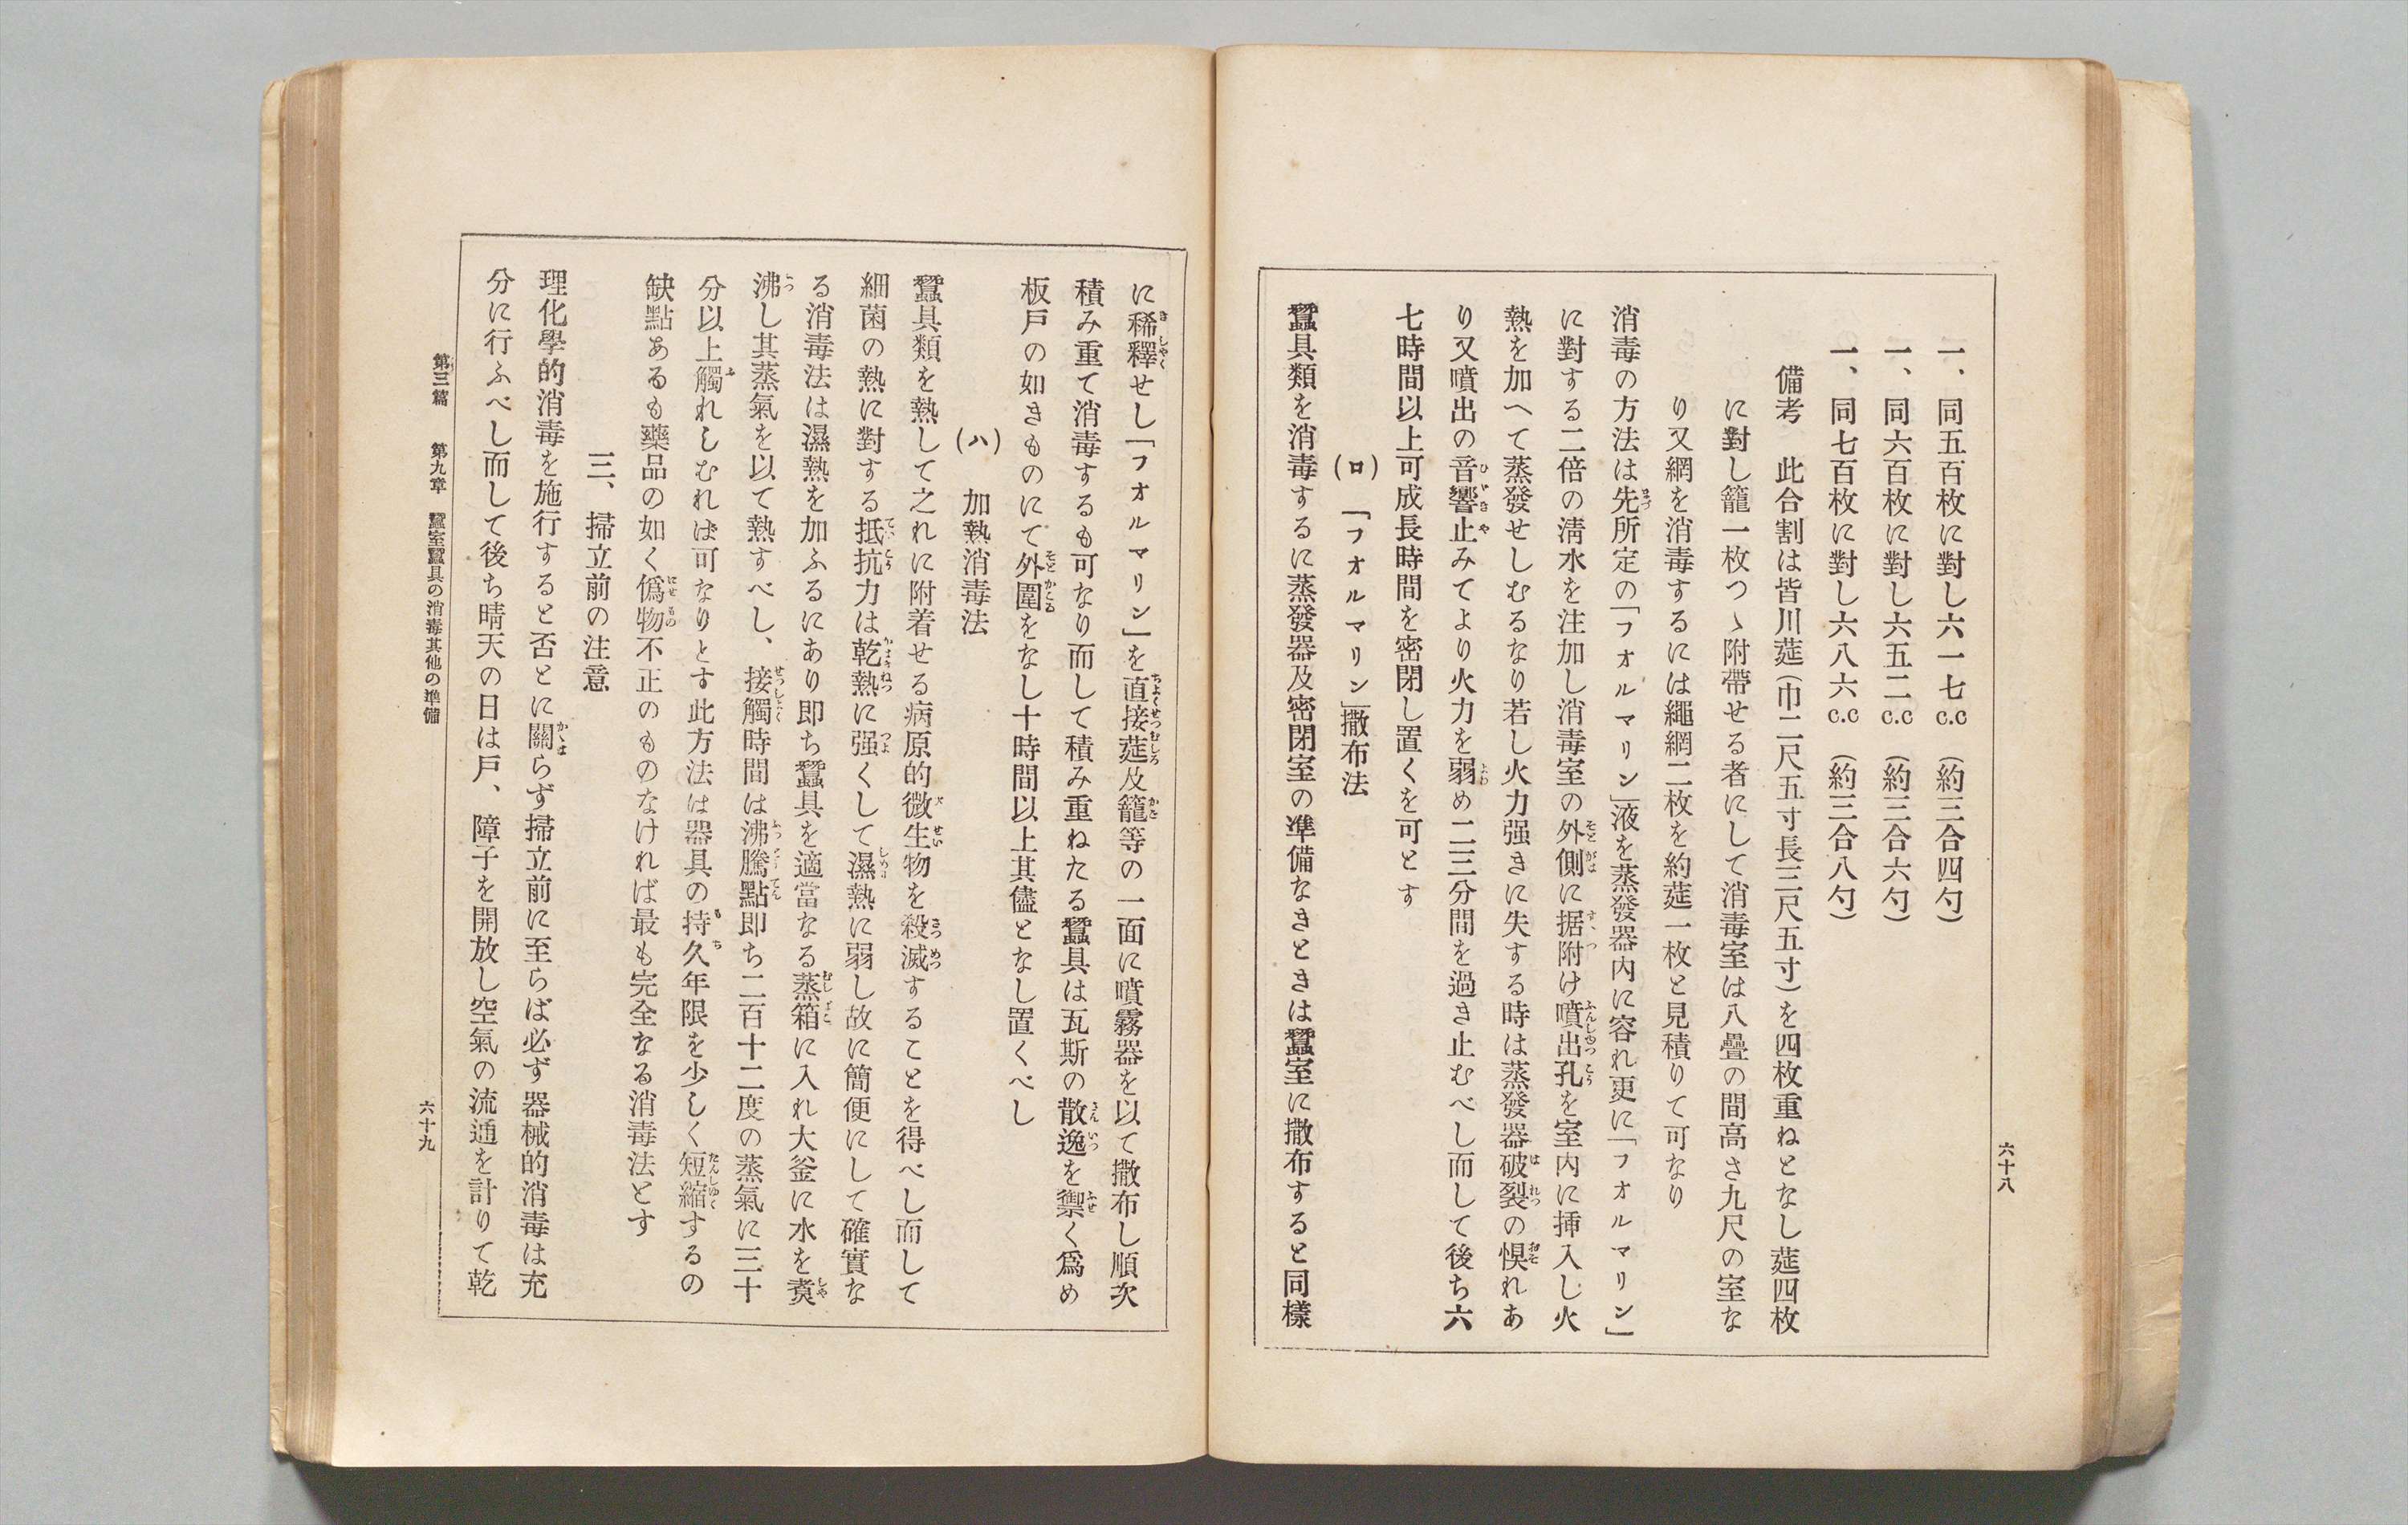 一、同五百枚に對し六一七c.c（約三合四勺）
一、同六百枚に對し六五二c.c（約三合六勺）
一、同七百枚に對し六八六c.c（約三合八勺）
備考　此合割は皆川莚（巾二尺五寸長三尺五寸）を四枚重ねとなし莚四枚
に對し籠一枚つゝ附帶せる者にして消毒室は八疊の間高さ九尺の室な
り又網を消毒するには繩網二枚を約莚一枚と見積りて可なり
消毒の方法は先所定の「フオルマリン」液を蒸發器內に容れ更に「フオルマリン」
に對する二倍の淸水を注加し消毒室の外側に据附け噴出孔を室內に挿入し火
熱を加へて蒸發せしむるなり若し火力强きに失する時は蒸發器破裂の惧れあ
り又噴出の音響止みてより火力を弱め二三分間を過き止むべし而して後ち六
七時間以上可成長時間を密閉し置くを可とす
（ロ）　「フオルマリン」撒布法
蠶具類を消毒するに蒸發器及密閉室の凖備なきときは蠶室に撒布すると同樣
六十八
に稀釋せし「フオルマリン」を直接莚及籠等の一面に噴霧器を以て撒布し順次
積み重て消毒するも可なり而して積み重ねたる蠶具は瓦斯の散逸を禦く爲め
板戸の如きものにて外圍をなし十時間以上其儘となし置くべし
（ハ）　加熱消毒法
蠶具類を熱して之れに附着せる病原的微生物を殺滅することを得べし而して
細菌の熱に對する抵抗力は乾熱に强くして濕熱に弱し故に簡便にして確實な
る消毒法は濕熱を加ふるにあり即ち蠶具を適當なる蒸箱に入れ大釜に水を煑
沸し其蒸氣を以て熱すべし、接觸時間は沸騰點即ち二百十二度の蒸氣に三十
分以上觸れしむれば可なりとす此方法は器具の持久年限を少しく短縮するの
缺點あるも藥品の如く僞物不正のものなければ最も完全なる消毒法とす
三、掃立前の注意
理化學的消毒を施行すると否とに關らず掃立前に至らば必ず器械的消毒は充
分に行ふべし而して後ち晴天の日は戸、障子を開放し空氣の流通を計りて乾
第三篇　第九章　蠶室蠶具の消毒其他の凖備
六十九